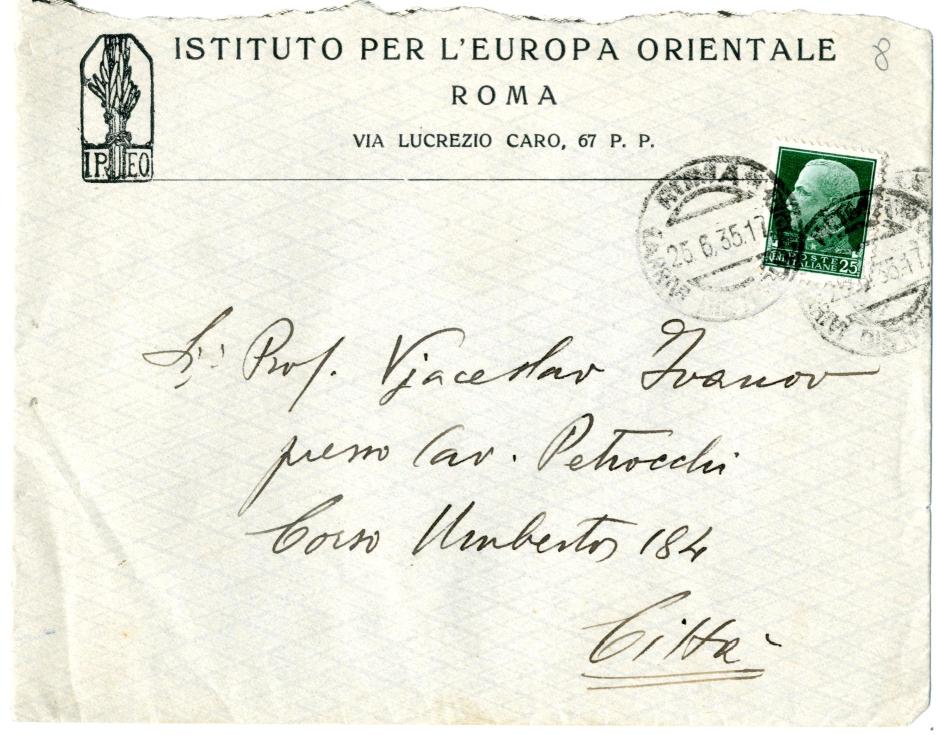 ISTITUTO PER L'EUROPA ORIENTALE
8
ROMA
VIA LUCREZIO CARO, 67 P. P.
I.P. L'E.O.
25.6.35.17
POSTE
ITALIANE 25
Prof. Vjaceslav Ivanov
presso Cav. Petrocchi
Corso Umberto 184
Città